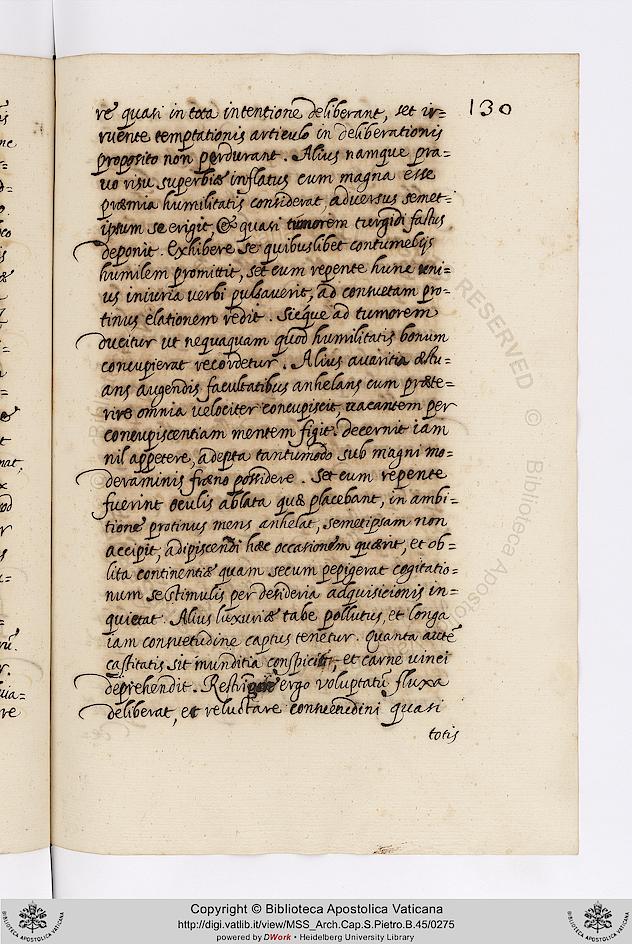 130
re quasi in tota intentione deliberant, set ir=
ruente temptationis articulo in deliberationis
proposito non perdurant. Alius namque pra=
uo risu superbiæ inflatus cum magna esse
præmia humilitatis considerat, aduersus semet=
ipsum se erigit, & quasi tumorem turgidi fastus
deponit. Exhibere se quibuslibet contumelijs
humilem promittit, set cum repente hunc vni=
us iniuria verbi pulsauerit, ad consuetam pro=
tinus elationem redit. Sicque ad tumorem
ducitur ut nequaquam quod humilitatis bonum
concupierat recordetur. Alius auaritia æstu=
ans augendis facultatibus anhelans cum præte=
rire omnia uelociter concupiscit, uacantem per
concupiscentiam mentem figit. decernit iam
nil appetere, adepta tantummodo sub magni mo=
deraminis fræno possidere. Set cum repente
fuerint oculis ablata quæ placebant, in ambi=
tione protinus mens anhelat, semetipsam non
accipit, adipiscendi hæc occasionem quærit, et ob=
lita continentiæ quam secum pepigerat cogitatio=
num se stimulis per desideria adquisicionis in=
quietat. Alius luxuriæ tabe pollutus, et longa
iam consuetudine captus tenetur. Quanta autē
castitatis sit munditia conspicit, et carne uinci
deprehendit. Restringere ergo voluptatū fluxa
deliberat, et reluctare consuetudini quasi
totis
RESERVED © Biblioteca Aposto
Copyright © Biblioteca Apostolica Vaticana
http://digi.vatlib.it/view/MSS_Arch.Cap.S.Pietro.B.45/0275
powered by DWork • Heidelberg University Library